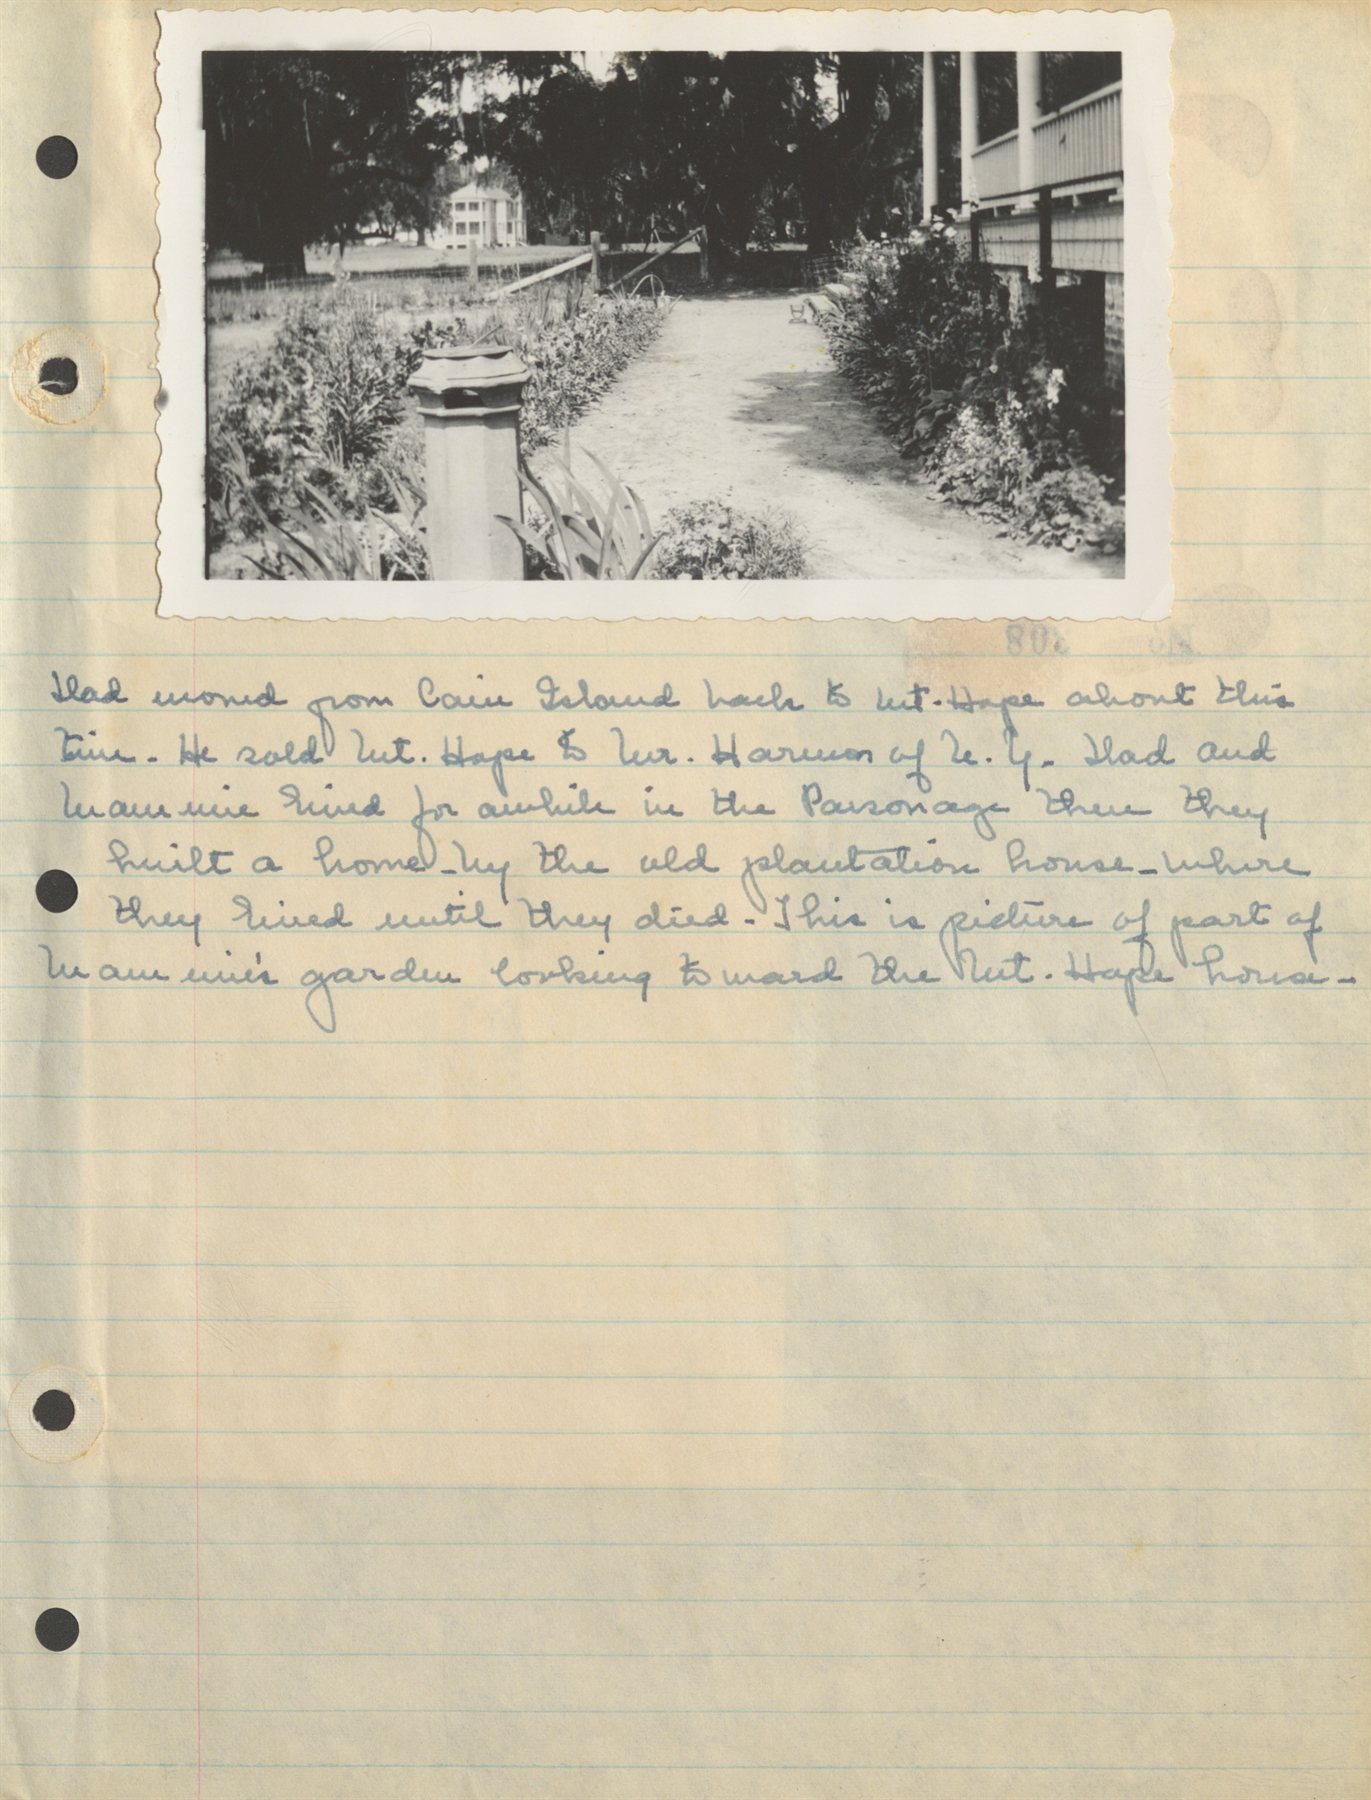 Dad moved from Cain Island back to Mt. Hope about this
time. He sold Mt. Hope to Mr. Harmon of N. Y. Dad and
Mammie lived for awhile in the Parsonage then they
built a home - by the old plantation house - where
they lived until they died - This is picture of part of
Mammie's garden looking toward the Mt. Hope house -